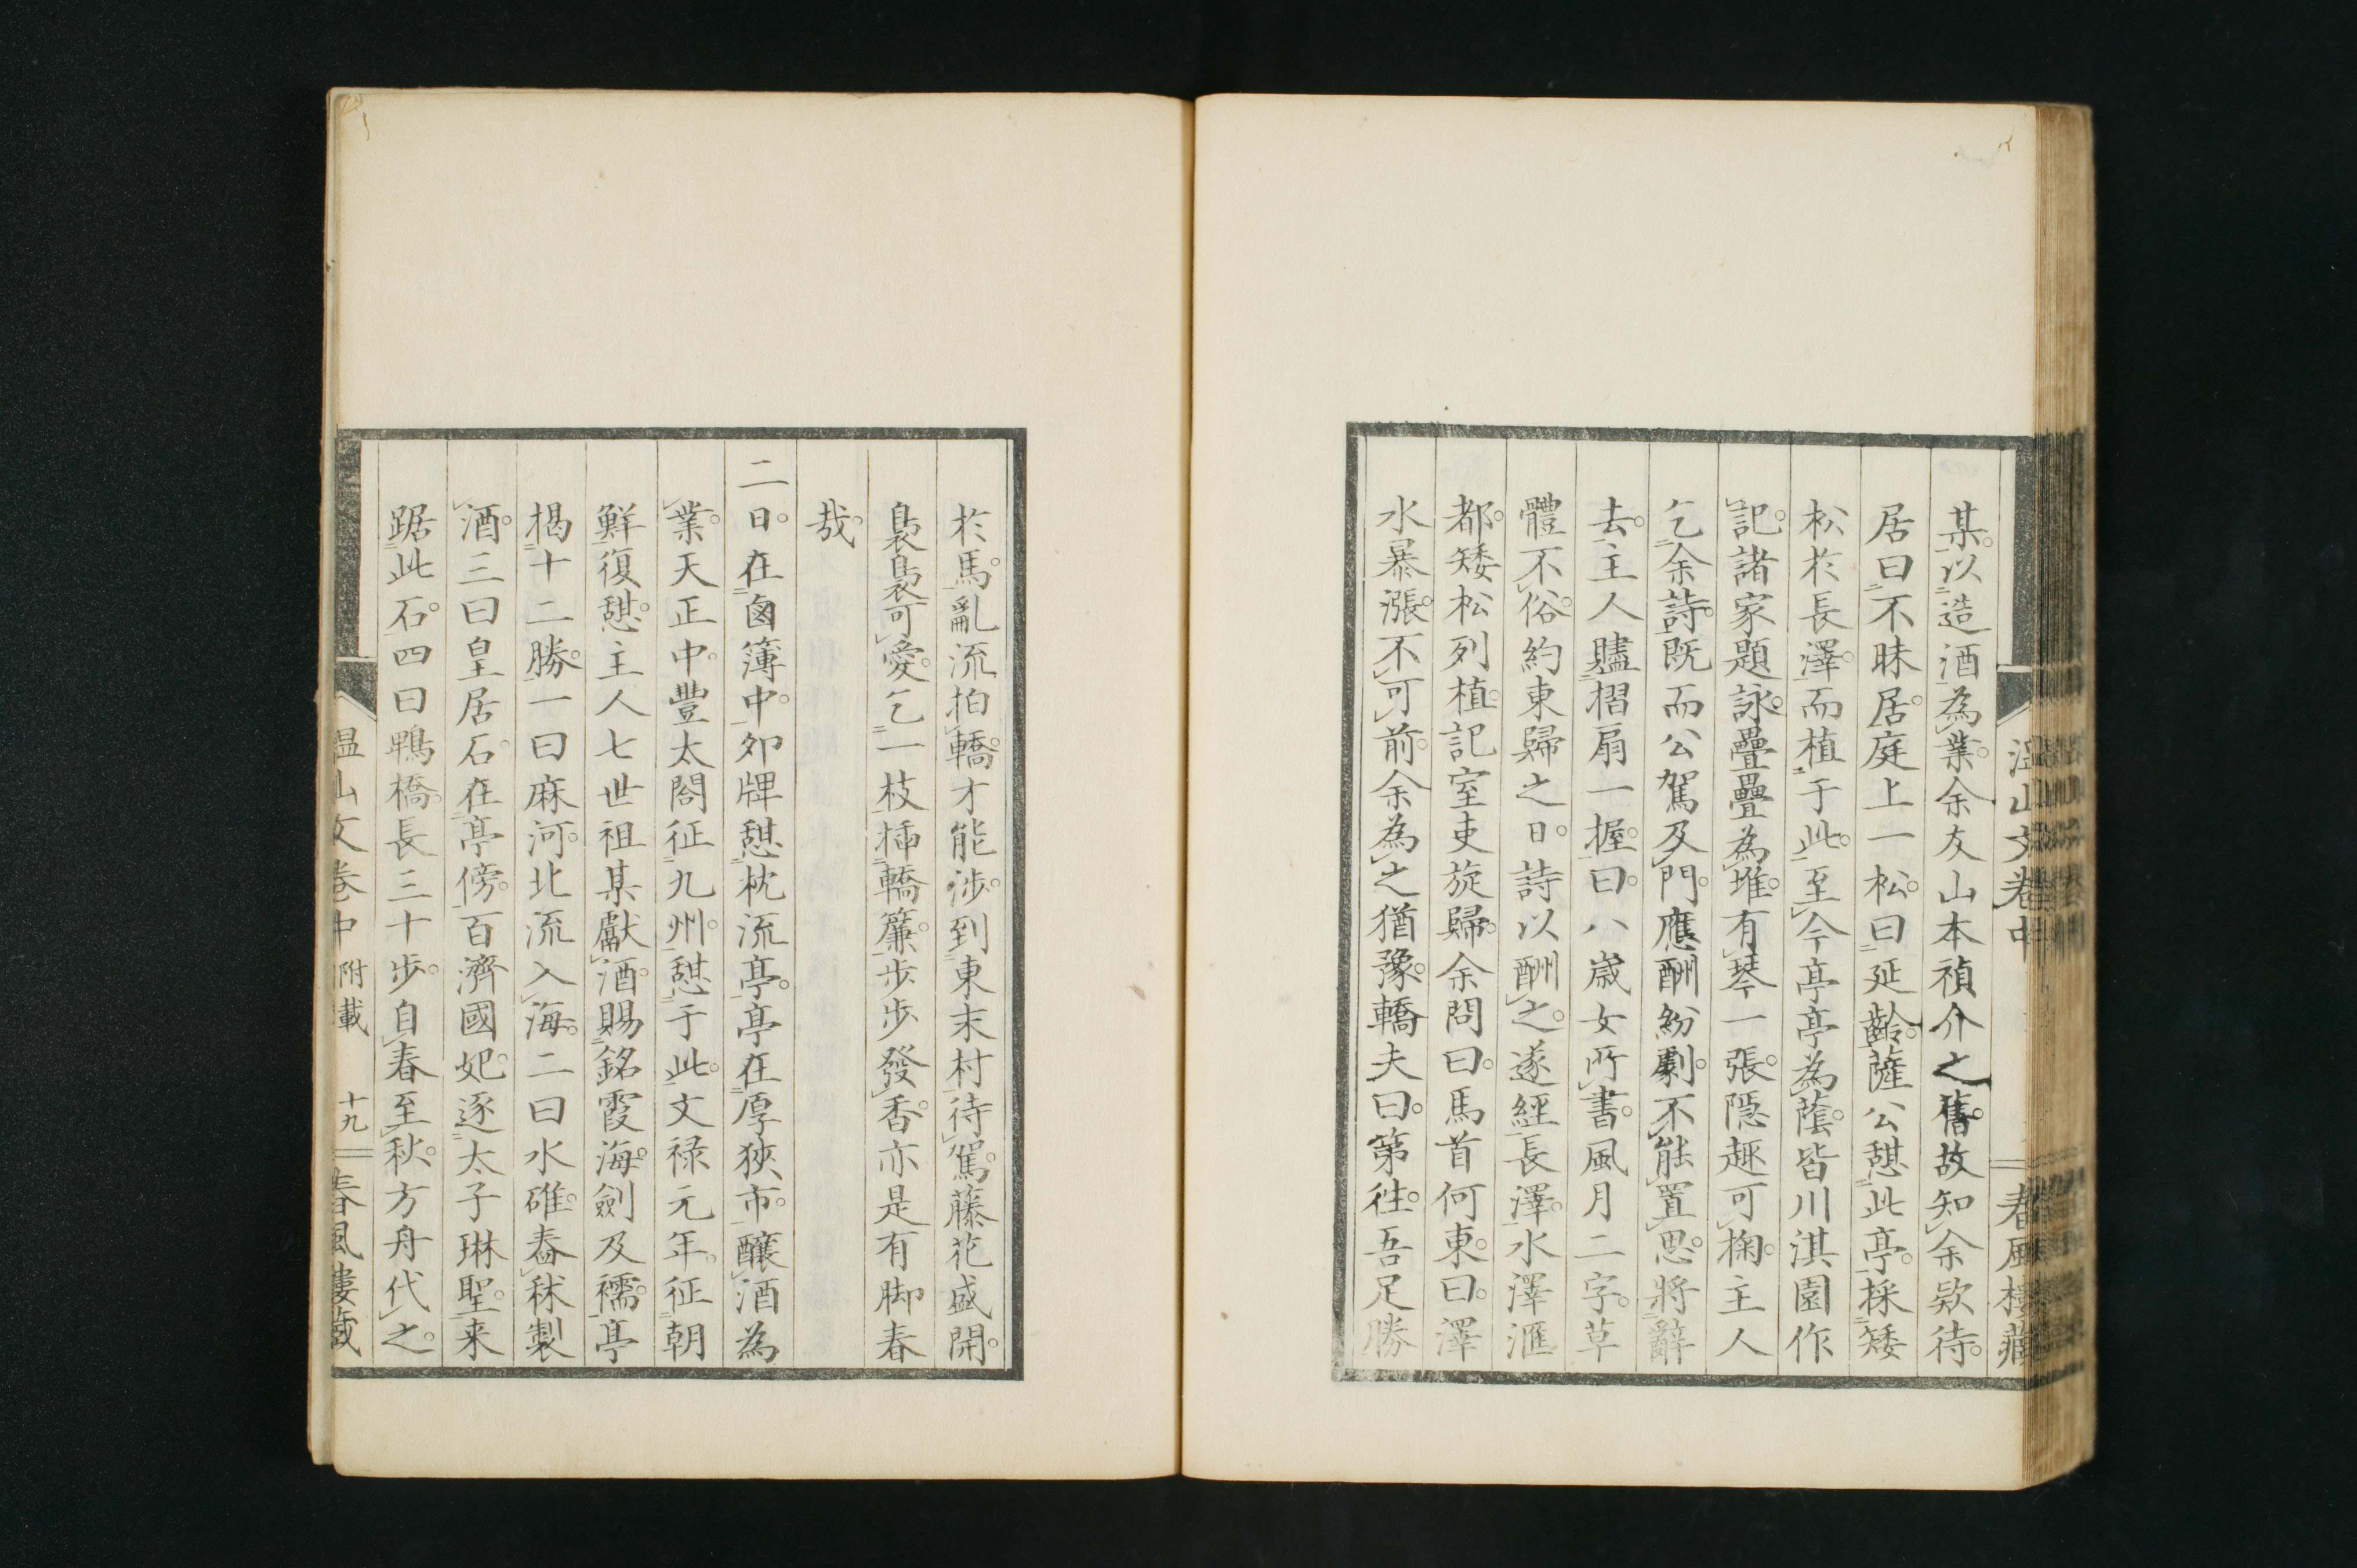 温山文卷中
春風樓藏
某。以造酒為業。余友山本禎介之舊。故知余欵待。
居曰不昧居。庭上一松。曰延齡。薩公憇此亭。採矮
松於長澤。而植于此。至今亭亭為蔭。皆川淇園作
記。諸家題詠。疊疊為堆。有琴一張。隱趣可掬。主人
乞余詩。既而公駕及門。應酬紛劇。不能置思。將辭
去。主人贐摺扇一握。曰。八歲女所書。風月二字。草
體不俗。約東歸之日。詩以酬之。遂經長澤。水澤滙
都。矮松列植。記室吏旋歸。余問曰。馬首何東。曰。澤
水暴漲。不可前。余為之猶豫。轎夫曰。第往。吾足勝
於馬。亂流拍轎。才能涉。到東末村。待駕。藤花盛開。
裊裊可愛。乞一枝。插轎簾。步步發香。亦是有脚春
哉。
二日。在鹵簿中。夘牌憇枕流亭。亭在厚狹市。釀酒為
業。天正中。豐太閤征九州。憇于此。文禄元年。征朝
鮮復憇。主人七世祖某獻酒。賜銘霞海。劍及襦。亭
楬十二勝。一曰麻河。北流入海。二曰水碓。舂秫製
酒。三曰皇居石。在亭傍。百濟國妃。逐太子琳聖。来
踞此石。四曰鴨橋。長三十步。自春至秋。方舟代之。
温山文卷中　附載　十九
春風樓藏